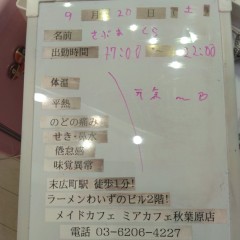 9月20日 土
名前
出勤時間 17:00 〜 22:00
体温
平熱
のどの痛み
せき・鼻水
倦怠感
味覚異常
末広町駅 徒歩1分!
ラーメンわいずのビル2階!
メイドカフェ ミアカフェ秋葉原店
電話 03-6206-4227